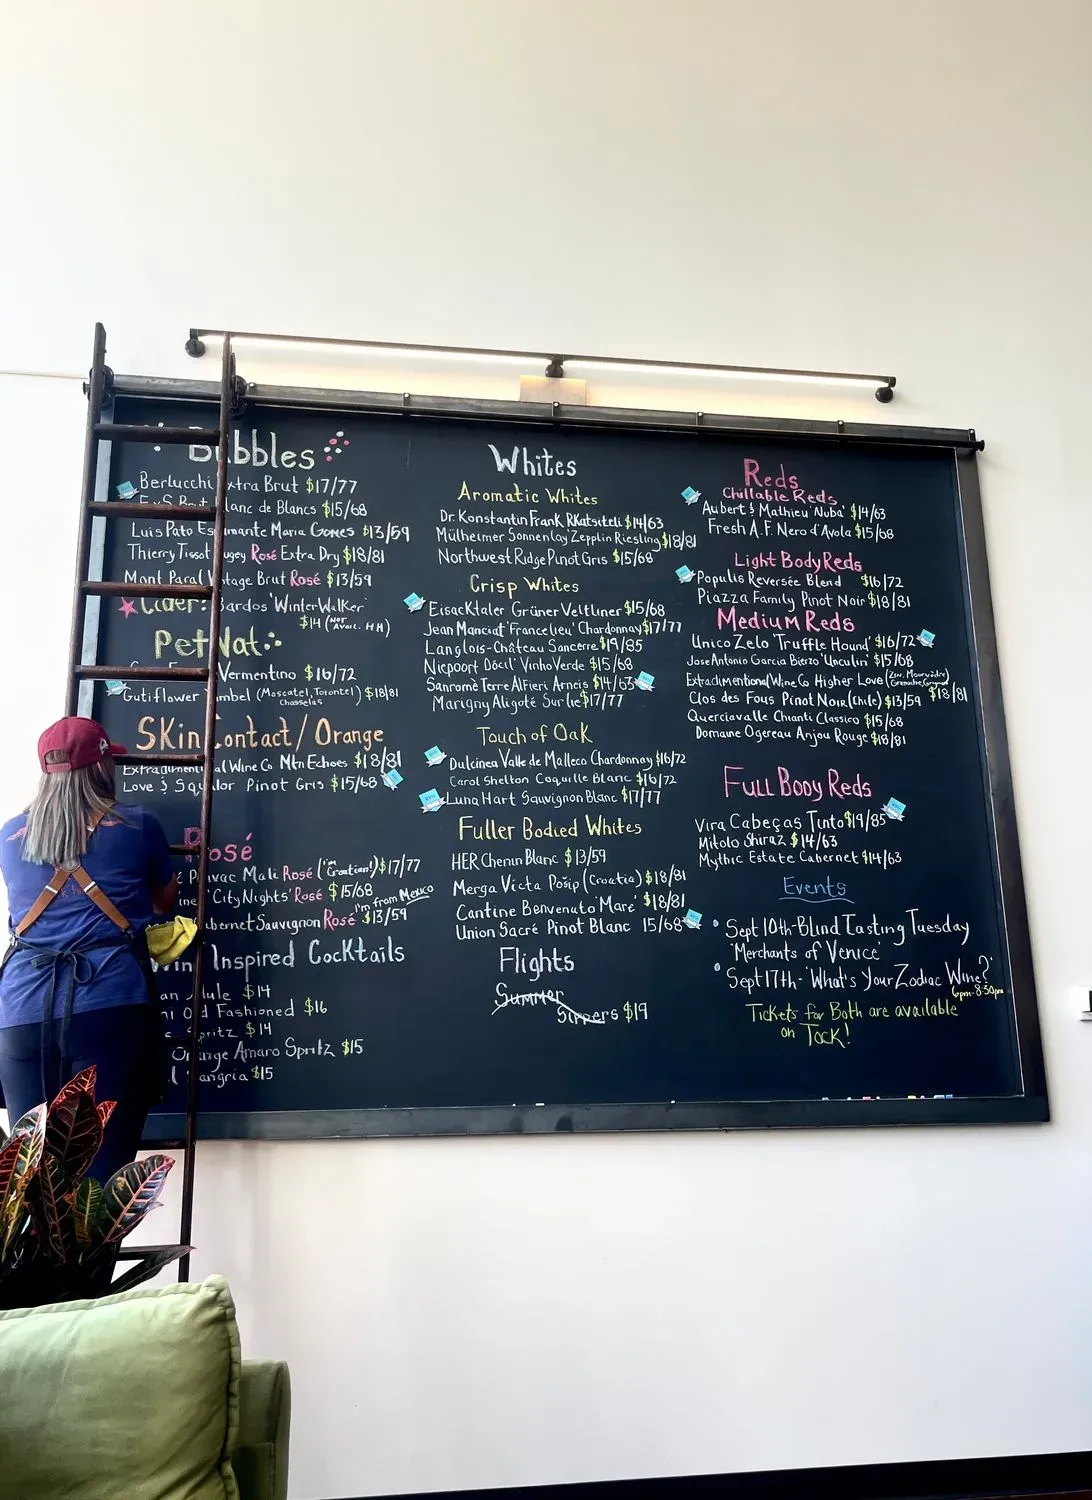 Bubbles
Berlucchi xtra Brut $17/77
Blanc de Blancs $15/68
Luis Pato Espumante Maria Gomes $13/59
Thierry Tissot ugey Rosé Extra Dry $18/81
Mont Paral Vintage Brut Rosé $13/59
Cider: Bardos 'Winter Walker'
$14 (Not Avail. HH)
Pet Nat:
Vermentino $16/72
Gutiflower mbel (Moscatel, Torontel, Chasselas) $18/81
Skin Contact/Orange
Extradimentional Wine Co Mtn Echoes $18/81
Love & Squalor Pinot Gris $15/68
Rosé
Pavac Mali Rosé (I'm Croatian!) $17/77
'City Nights' Rosé $15/68
I'm from Mexico
Cabernet Sauvignon Rosé $13/59
Wine Inspired Cocktails
Mule $14
Old Fashioned $16
Spritz $14
Orange Amaro Spritz $15
Sangria $15
Whites
Aromatic Whites
Dr. Konstantin Frank RKatsiteli $14/63
Mülheimer Sonnenlay 'Zepplin Riesling $18/81
Northwest Ridge Pinot Gris $15/68
Crisp Whites
Eisacktaler Grüner Veltliner $15/68
Jean Manciat 'Francelieu' Chardonnay $17/77
Langlois-Château Sancerre $19/85
Niepoort Dócil' Vinho Verde $15/68
Sanromè Terre Alfieri Arneis $14/63
Marigny Aligoté Sur lie $17/77
Touch of Oak
Dulcinea Valle de Malleco Chardonnay $16/72
Carol Shelton Coquille Blanc $16/72
Luna Hart Sauvignon Blanc $17/77
Fuller Bodied Whites
HER Chenin Blanc $13/59
Merga Victa Pošip (Croatia) $18/81
Cantine Benvenuto 'Mare' $18/81
Union Sacré Pinot Blanc 15/68
Flights
Summer
Sippers $19
Reds
Chillable Reds
Aubert & Mathieu 'Nuba' $14/63
Fresh A.F. Nero d'Avola $15/68
Light Body Reds
Populis Reversée Blend $16/72
Piazza Family Pinot Noir $18/81
Medium Reds
Unico Zelo 'Truffle Hound' $16/72
Jose Antonio Garcia Bierzo 'Unculin' $15/68
Extradimentional Wine Co Higher Love (Zin, Mourvèdre, Grenache, Carignan) $18/81
Clos des Fous Pinot Noir (Chile) $13/59
Querciavalle Chianti Classico $15/68
Domaine Ogereau Anjou Rouge $18/81
Full Body Reds
Vira Cabeças Tinto $19/85
Mitolo Shiraz $14/63
Mythic Estate Cabernet $14/63
Events
• Sept 10th-Blind Tasting Tuesday
'Merchants of Venice'
• Sept 17th-'What's Your Zodiac Wine?'
6pm-8:30pm
Tickets for Both are available
on Tock!